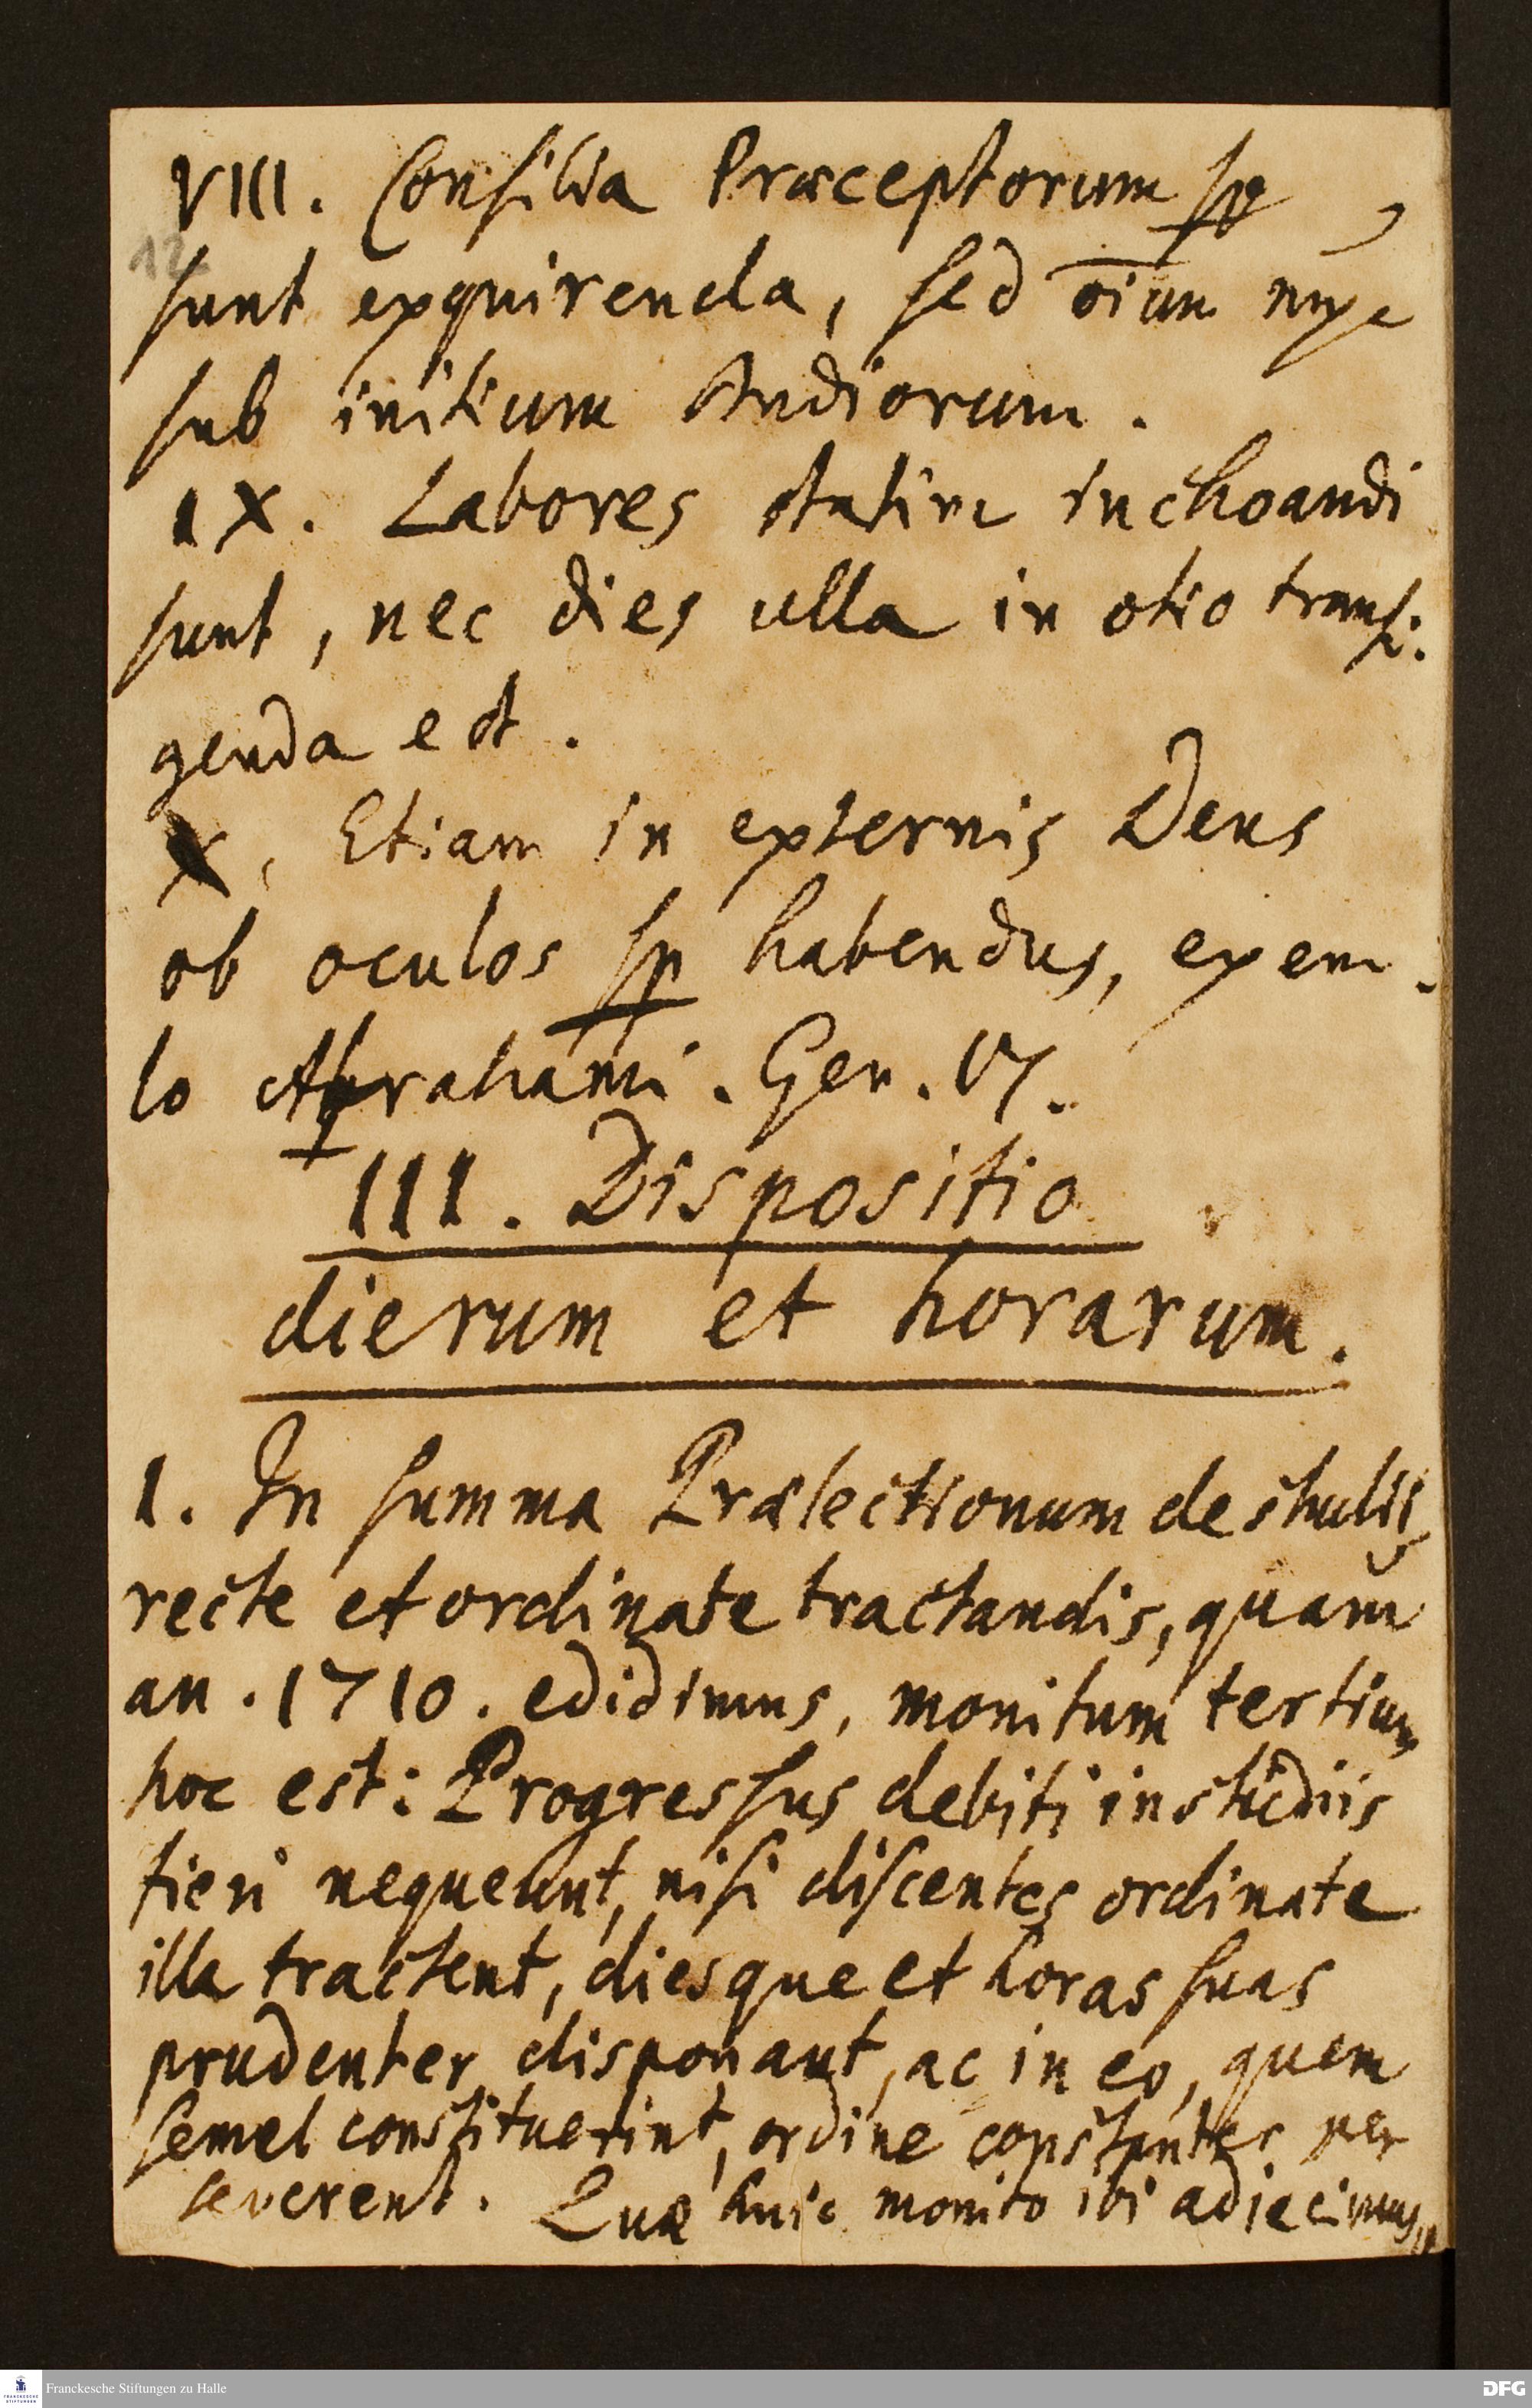 VIII. Consilia Præceptorum sp̱e
12
sunt exquirenda, sed o̅ium mxe
sub initium studiorum.
IX. Labores statim inchoandi
sunt, nec dies ulla in otio transi:
genda est.
X, Etiam in externis Deus
ob oculos sp̱ habendus, exem-
lo Abrahami. Gen. 17.
III. Dispositio
dierum et horarum.
1. In summa Prælectionum de studiis
recte et ordinate tractandis, quam
an. 1710. edidimus, monitum tertium
hoc est: Progressus debiti in studiis
fieri nequeunt, nisi discentes ordinate
illa tractent, diesque et horas suas
prudenter disponant, ac in eo, quem
semel constituerint, ordine constanter per
severent. Quæ huic monito ibi adiecimus,
Franckesche Stiftungen zu Halle
FRANCKESCHE
STIFTUNGEN
DFG